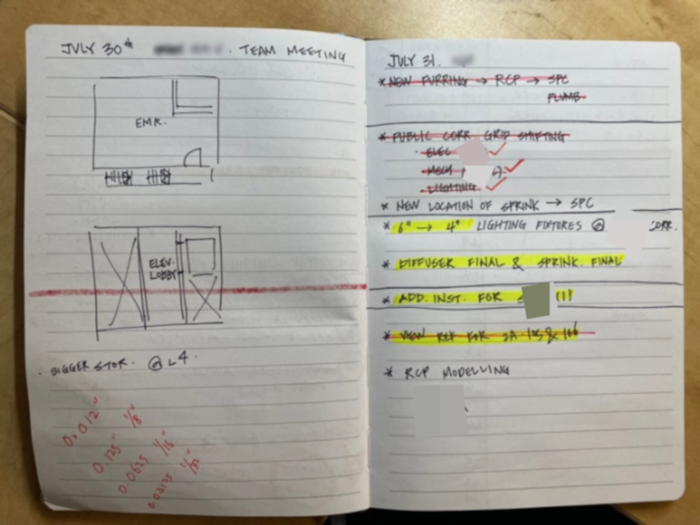 JULY 30th
. TEAM MEETING
EMR.
ELEV.
LOBBY
. BIGGER STOR. @ L4.
0.012" 1/8"
0.125" 1/16"
0.0625 1/32"
0.03125
JULY 31.
* NEW FURRING → RCP → SPC
PLUMB.
* PUBLIC CORR. GRID SHIFTING
. ELEC ✓
. MECH ✓
. LIGHTING ✓
* NEW LOCATION OF SPRINK → SPC
* 6" → 4" LIGHTING FIXTURES @ CORR.
* DIFFUSER FINAL & SPRINK. FINAL
* ADD. INST. FOR
* VIEW REF FOR 2A-105 & 106
* RCP MODELLING